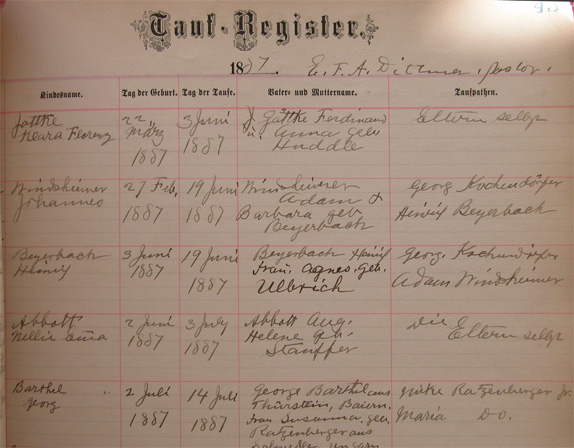 43
Tauf-Register.
1887. E. F. A. Dittmer, pastor.
Kindesname. Tag der Geburt. Tag der Taufe. Vater- und Muttername. Taufpathen.
Jattke 22 3 Juni J. Gattke Ferdinand Eltern selbst
Klara Florenz März 1887 u. Anna geb.
1887 Huddle
Windsheimer 27 Feb. 19 Juni Windsheimer Georg Kochendörfer
Johannes 1887 1887 Adam &
Barbara geb. Heinrich Beyerbach
Beyerbach
Beyerbach 3 Juni 19 Juni Beyerbach Heinrich Georg Kochendörfer
Heinrich 1887 1887 Frau. Agnes. geb. Adam Windsheimer
Ulbrich
Abbott 2 Juni 3 July Abbott Aug. Die
Nellie 1887 1887 Helene geb. Eltern selbst
Stauffer
Barthel 2 Juli 14 Juli George Barthel aus Ratzenberger Jr.
Georg 1887 1887 Thurstein, Baiern. Maria Do.
Frau Susanna. geb.
Ratzenberger aus
Ungarn